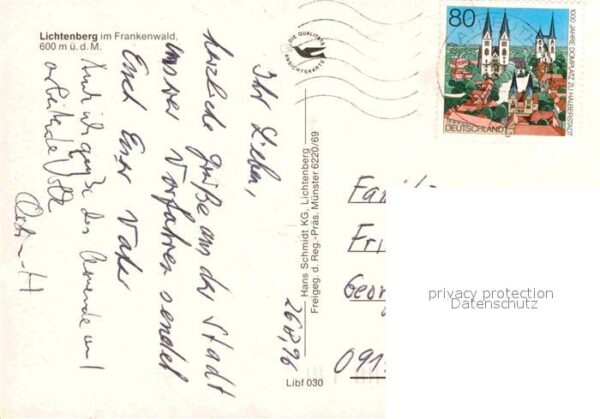 Lichtenberg im Frankenwald,
600 m ü. d. M.
DIE QUALITÄTS
ANSICHTSKARTE
80
1000 JAHRE DOMPLATZ ZU HALBERSTADT
DEUTSCHLAND
Ihr Lieben,
herzliche Grüße aus der Stadt
unserer Vorfahren sendet
Euch Euer Vater
Auch ich grüße
26.8.96
Hans Schmidt KG, Lichtenberg
Freigeg. d. Reg.-Präs. Münster 6220/69
Libf 030
Fami
Fri
Georg
091
privacy protection
Datenschutz